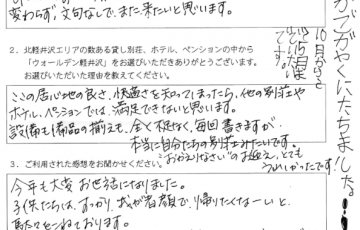 変わらず、文句なしで、また、来たいと思います。
2．北軽井沢エリアの数ある貸し別荘、ホテル、ペンションの中から
「ウォールデン軽井沢」をお選びいただきありがとうございます。
お選びいただいた理由を教えてください。
ここの居心地の良さ、快適さを知ってしまったら、他の別荘や
ホテル、ペンションでは、満足できないと思います。
設備も備品の揃えも、全く不足なく、毎回書きますが、
本当に自分たちの別荘みたいです。
“おかえりなさい”のお迎え、とても
うれしかったです！
3．ご利用された感想をお聞かせください。
今年も大変お世話になりました。
子供たちは、すっかり、我が者顔で、「帰りたくなーい」と、
駄々をこねております。
です。